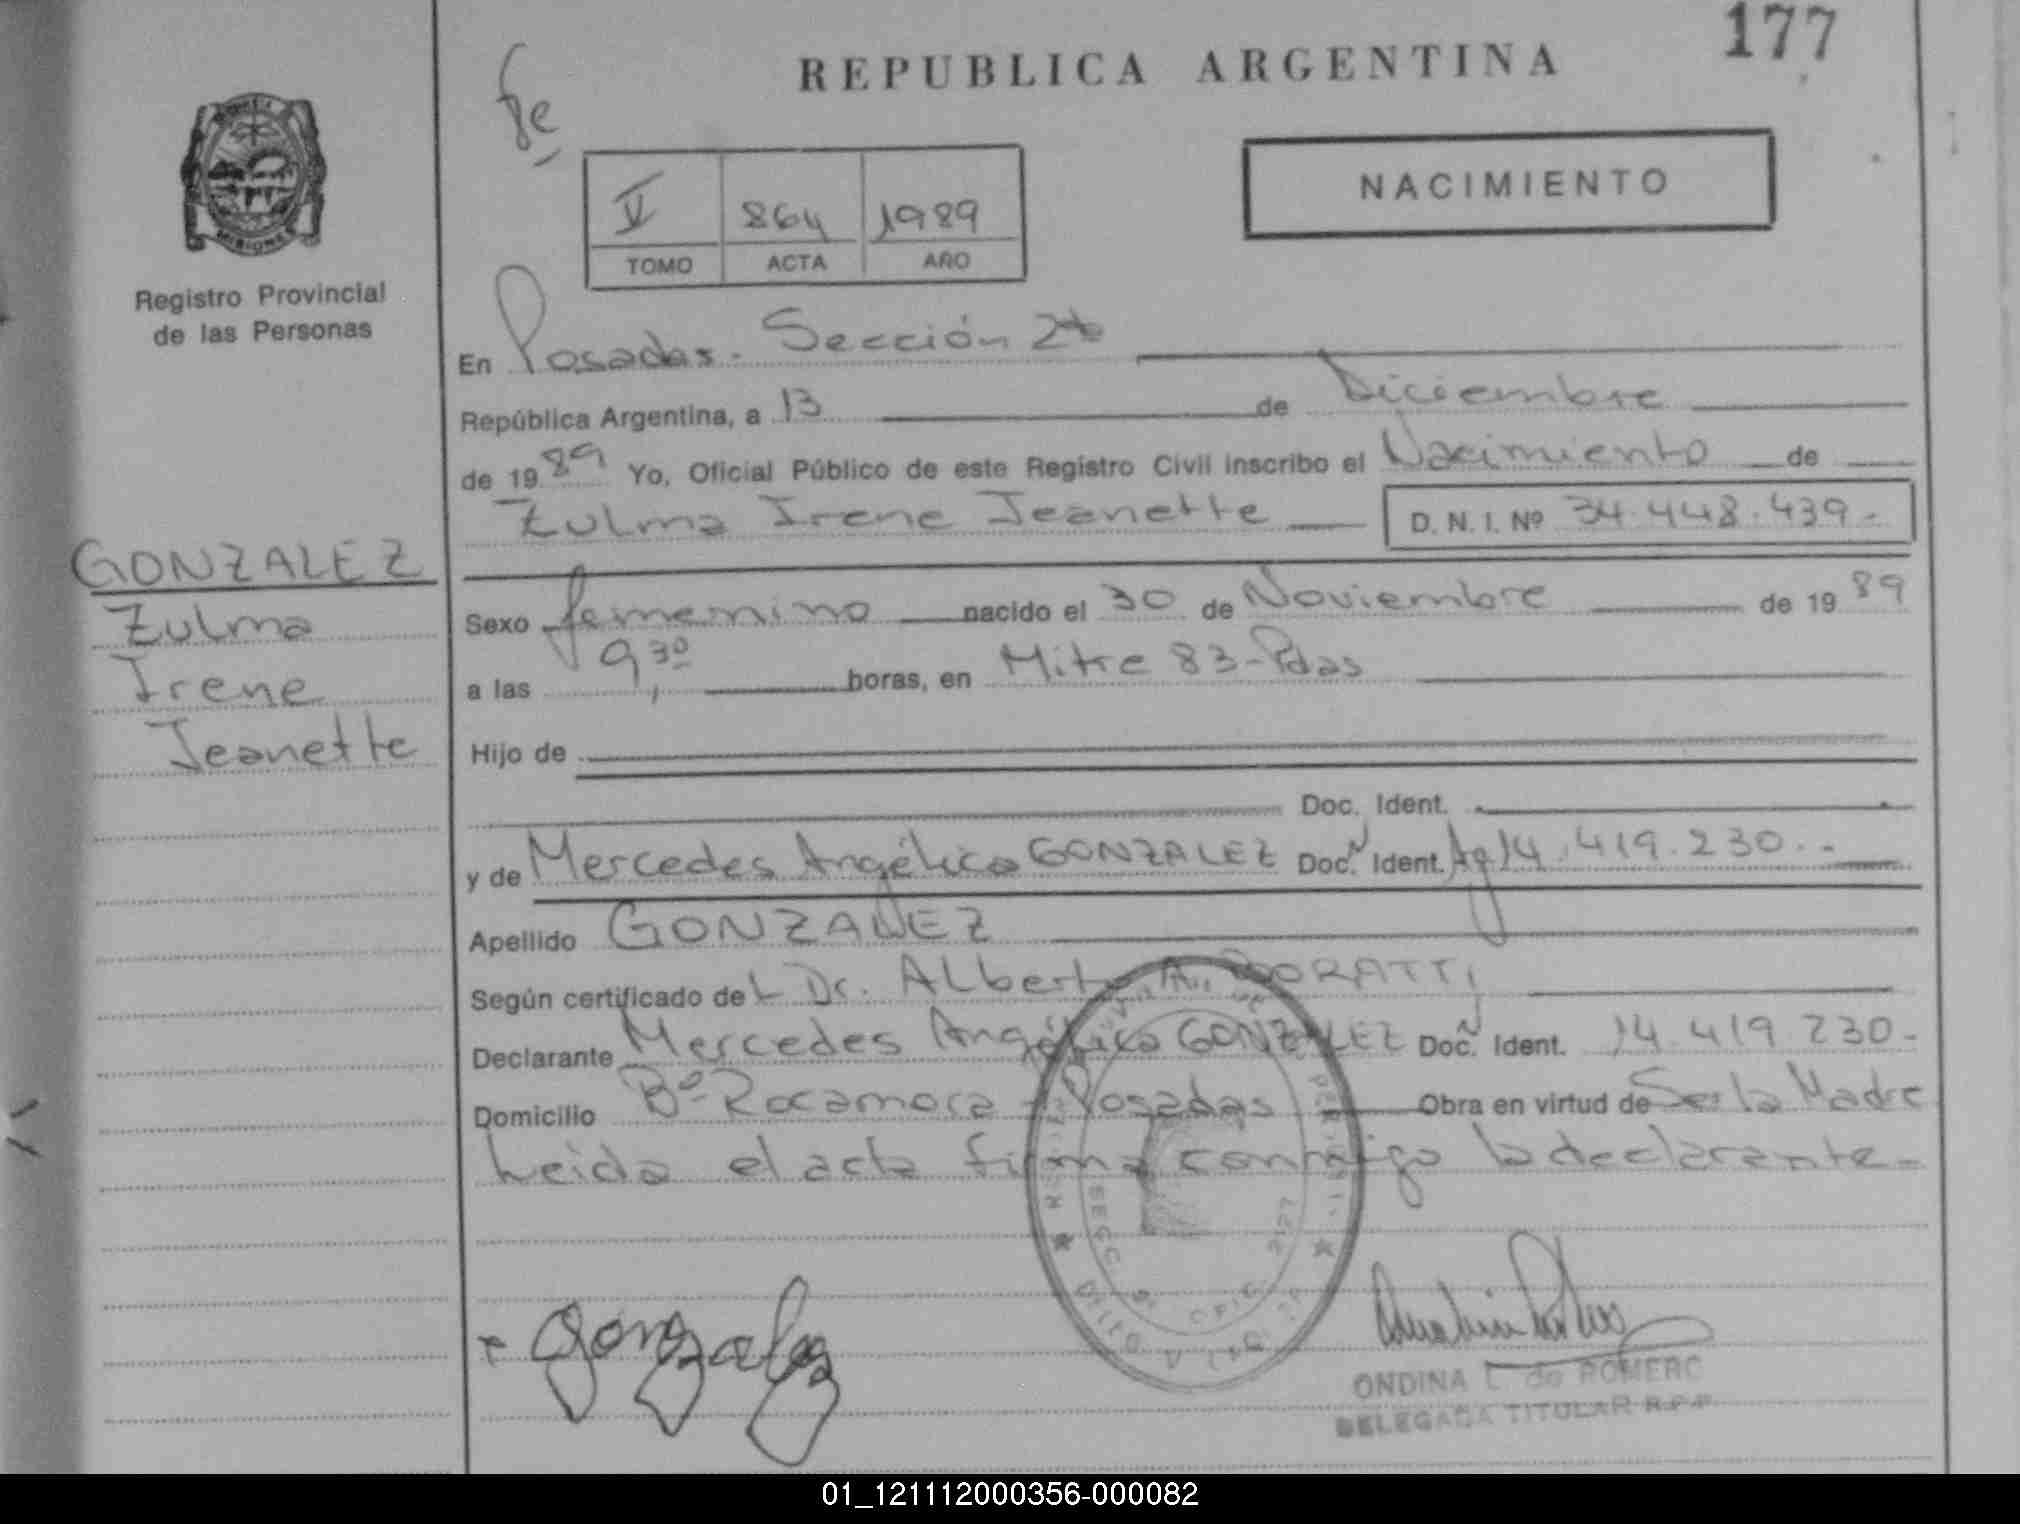 177
REPUBLICA ARGENTINA
NACIMIENTO
V 864 1989
TOMO ACTA AÑO
MISIONES
Registro Provincial
de las Personas
En Posadas. Sección 2da
República Argentina, a 13 de Diciembre
de 1989 Yo, Oficial Público de este Registro Civil inscribo el Nacimiento de
Zulma Irene Jeanette D. N. I. Nº 34.448.439.-
GONZALEZ
Zulma
Irene
Jeanette
Sexo femenino nacido el 30 de Noviembre de 1989
a las 9,30 horas, en Mitre 83-Pdas
Hijo de
Doc. Ident.
y de Mercedes Angélica GONZALEZ Doc. Ident. Ag 14.419.230.-
Apellido GONZALEZ
Según certificado del Dr. Alberto A. MORATTI
Declarante Mercedes Angélica GONZALEZ Doc. Ident. 14.419.230-
Domicilio Bº Rocamora - Posadas Obra en virtud de Ser la Madre
Leida el acta firma conmigo la declarante-
Gonzalez
ONDINA L. de ROMERO
DELEGADA TITULAR R.P.P.
01_121112000356-000082